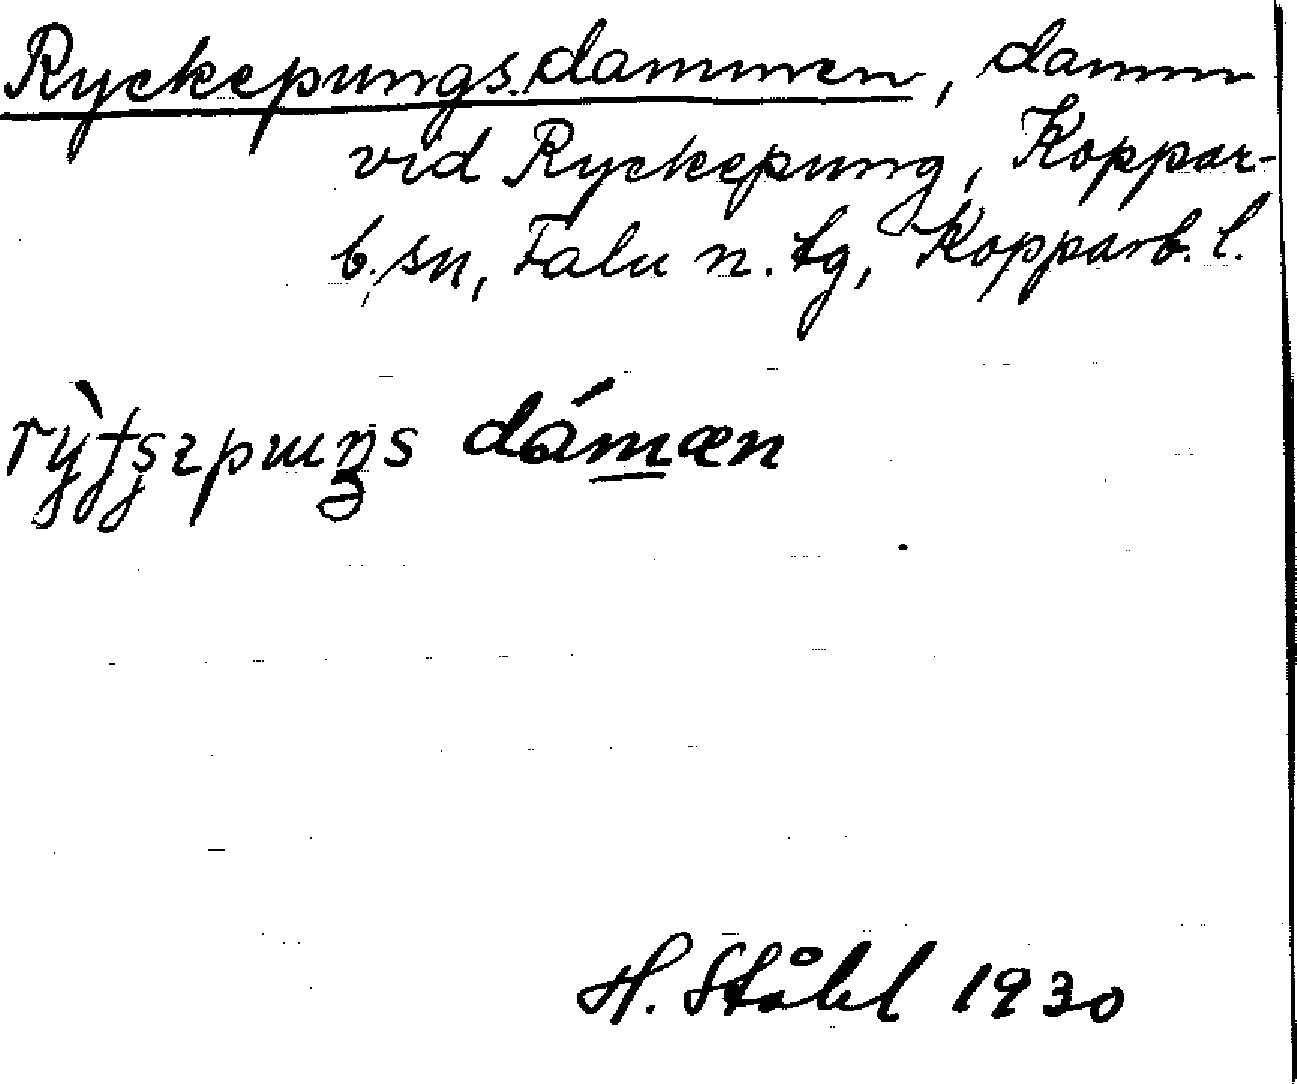 Ryckepungsdammen, damm
vid Ryckepung, Koppar-
b. sn, Falu n. tg, Kopparb. l.
dámæn
H. Ståhl 1930